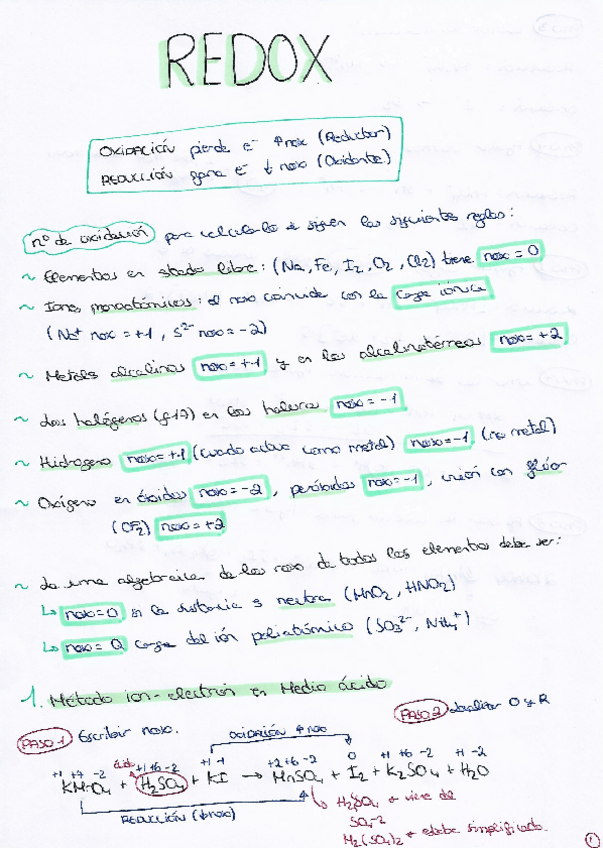 REDOX
OXIDACIÓN pierde e⁻ ↑noxo (Reductor)
REDUCCIÓN gana e⁻ ↓ noxo (Oxidante)
nº de oxidación para calcularlo se siguen las siguientes reglas:
~ Elementos en estado libre: (Na, Fe, I₂, O₂, Cl₂) tiene noxo = 0
~ Iones monoatómicos: el noxo coincide con la carga iónica
(Na⁺ nox = +1, S²⁻ noxo = -2)
~ Metales alcalinos noxo = +1 y en los alcalinotérreos noxo = +2
~ Los halógenos (g.17) en los haluros noxo = -1
~ Hidrogeno noxo = +1 (cuando actua como metal) noxo = -1 (no metal)
~ Oxígeno en óxidos noxo = -2, peróxidos noxo = -1, unión con flúor
(OF₂) noxo = +2
~ La suma algebraica de los noxo de todos los elementos debe ser:
↳ noxo = 0 si la sustancia es neutra (MnO₂, HNO₂)
↳ noxo = Q carga del ión poliatómico (SO₃²⁻, NH₄⁺)
1. Método ion-electrón en Medio ácido
PASO 1 Escribir noxo.
PASO 2 Localizar O y R
OXIDACIÓN ↑noxo
+1 +7 -2 ácido +1 +6 -2 +1 -1 +2 +6 -2 0 +1 +6 -2 +1 -2
KMnO₄ + H₂SO₄ + KI → MnSO₄ + I₂ + K₂SO₄ + H₂O
REDUCCIÓN (↓noxo)
↳ H₂SO₄ → viene de
SO₄-2
M₂(SO₄)₂ → debe simplificado.
1